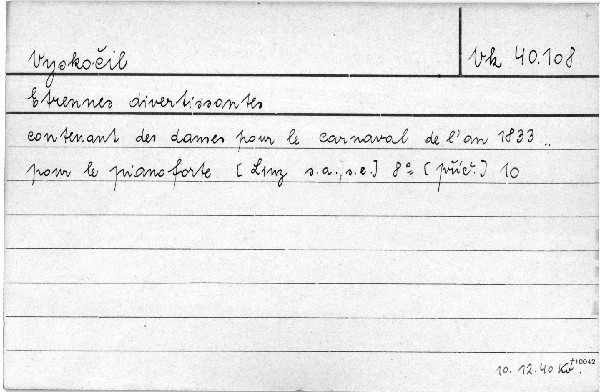 Vyskočil
Vk 40.108
Etrennes divertissantes
contenant des danses pour le carnaval de l'an 1833 ..
pour le pianoforte [Linz s.a., s.e.] 8° (příč.) 10
10. 12. 40 Kv.
†10042